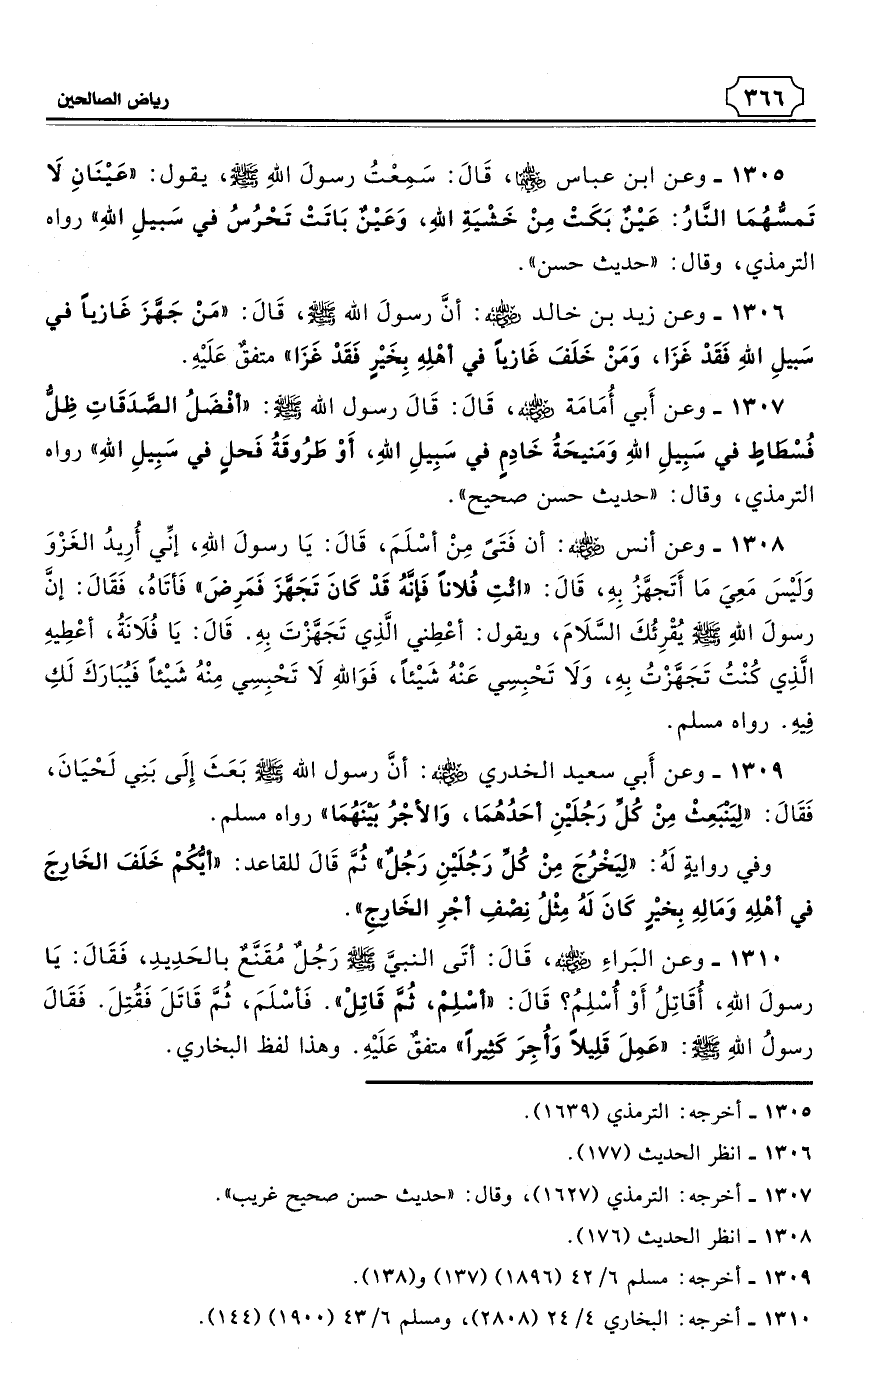 ٣٦٦
رياض الصالحين
١٣٠٥ ـ وعن ابن عباس ﵄، قَالَ: سَمِعْتُ رسولَ اللهِ ﷺ، يقول: «عَيْنَانِ لَا
تَمسُّهُمَا النَّارُ: عَيْنٌ بَكَتْ مِنْ خَشْيَةِ اللهِ، وَعَيْنٌ بَاتَتْ تَحْرُسُ في سَبيلِ اللهِ» رواه
الترمذي، وقال: «حديث حسن».
١٣٠٦ ـ وعن زيد بن خالد ﵁: أنَّ رسولَ الله ﷺ، قَالَ: «مَنْ جَهَّزَ غَازياً في
سَبيلِ اللهِ فَقَدْ غَزَا، وَمَنْ خَلَفَ غَازياً في أهْلِهِ بِخَيْرٍ فَقَدْ غَزَا» متفقٌ عَلَيْهِ.
١٣٠٧ ـ وعن أَبي أُمَامَة ﵁، قَالَ: قَالَ رسول الله ﷺ: «أفْضَلُ الصَّدَقَاتِ ظِلُّ
فُسْطَاطٍ في سَبِيلِ اللهِ وَمَنيحَةُ خَادِمٍ في سَبِيلِ اللهِ، أَوْ طَرُوقَةُ فَحلٍ في سَبِيلِ اللهِ» رواه
الترمذي، وقال: «حديث حسن صحيح».
١٣٠٨ ـ وعن أنس ﵁: أن فَتَىً مِنْ أسْلَمَ، قَالَ: يَا رسولَ اللهِ، إنِّي أُرِيدُ الغَزْوَ
وَلَيْسَ مَعِيَ مَا أَتَجهَّزُ بِهِ، قَالَ: «ائْتِ فُلاناً فَإنَّهُ قَدْ كَانَ تَجَهَّزَ فَمَرِضَ» فَأتَاهُ، فَقَالَ: إنَّ
رسولَ اللهِ ﷺ يُقْرِئُكَ السَّلَامَ، ويقول: أعْطِني الَّذِي تَجَهَّزْتَ بِهِ. قَالَ: يَا فُلَانَةُ، أعْطِيهِ
الَّذِي كُنْتُ تَجَهَّزْتُ بِهِ، وَلَا تَحْبِسِي عَنْهُ شَيْئاً، فَوَاللهِ لَا تَحْبِسِي مِنْهُ شَيْئاً فَيُبَارَكَ لَكِ
فِيهِ. رواه مسلم.
١٣٠٩ ـ وعن أَبي سعيد الخدري ﵁: أنَّ رسول الله ﷺ بَعَثَ إِلَى بَنِي لَحْيَانَ،
فَقَالَ: «لِيَنْبَعِثْ مِنْ كُلِّ رَجُلَيْنِ أحَدُهُمَا، وَالأجْرُ بَيْنَهُمَا» رواه مسلم.
وفي روايةٍ لَهُ: «لِيَخْرُجَ مِنْ كُلِّ رَجُلَيْنِ رَجُلٌ» ثُمَّ قَالَ للقاعد: «أيُّكُمْ خَلَفَ الخَارِجَ
في أهْلِهِ وَمَالِهِ بِخَيْرٍ كَانَ لَهُ مِثْلُ نِصْفِ أجْرِ الخَارِجِ».
١٣١٠ ـ وعن البَراءِ ﵁، قَالَ: أتَى النبيَّ ﷺ رَجُلٌ مُقَنَّعٌ بالحَدِيدِ، فَقَالَ: يَا
رسولَ اللهِ، أُقَاتِلُ أَوْ أُسْلِمُ؟ قَالَ: «أسْلِمْ، ثُمَّ قَاتِلْ». فَأسْلَمَ، ثُمَّ قَاتَلَ فَقُتِلَ. فَقَالَ
رسولُ اللهِ ﷺ: «عَمِلَ قَلِيلاً وَأُجِرَ كَثِيراً» متفقٌ عَلَيْهِ. وهذا لفظ البخاري.
١٣٠٥ ـ أخرجه: الترمذي (١٦٣٩).
١٣٠٦ ـ انظر الحديث (١٧٧).
١٣٠٧ ـ أخرجه: الترمذي (١٦٢٧)، وقال: «حديث حسن صحيح غريب».
١٣٠٨ ـ انظر الحديث (١٧٦).
١٣٠٩ ـ أخرجه: مسلم ٦/ ٤٢ (١٨٩٦) (١٣٧) و(١٣٨).
١٣١٠ ـ أخرجه: البخاري ٤/ ٢٤ (٢٨٠٨)، ومسلم ٦/ ٤٣ (١٩٠٠) (١٤٤).